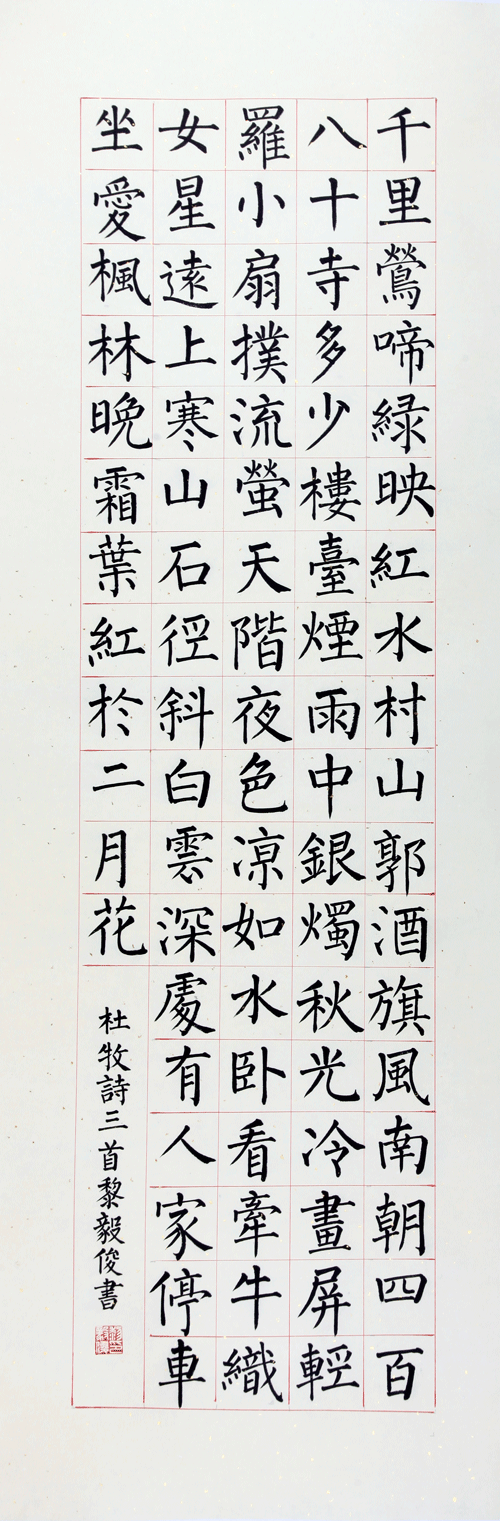 千里鶯啼緑映紅水村山郭酒旗風南朝四百
八十寺多少樓臺煙雨中銀燭秋光冷畫屏輕
羅小扇撲流螢天階夜色涼如水卧看牽牛織
女星遠上寒山石徑斜白雲深處有人家停車
坐愛楓林晚霜葉紅於二月花
杜牧詩三首黎毅俊書